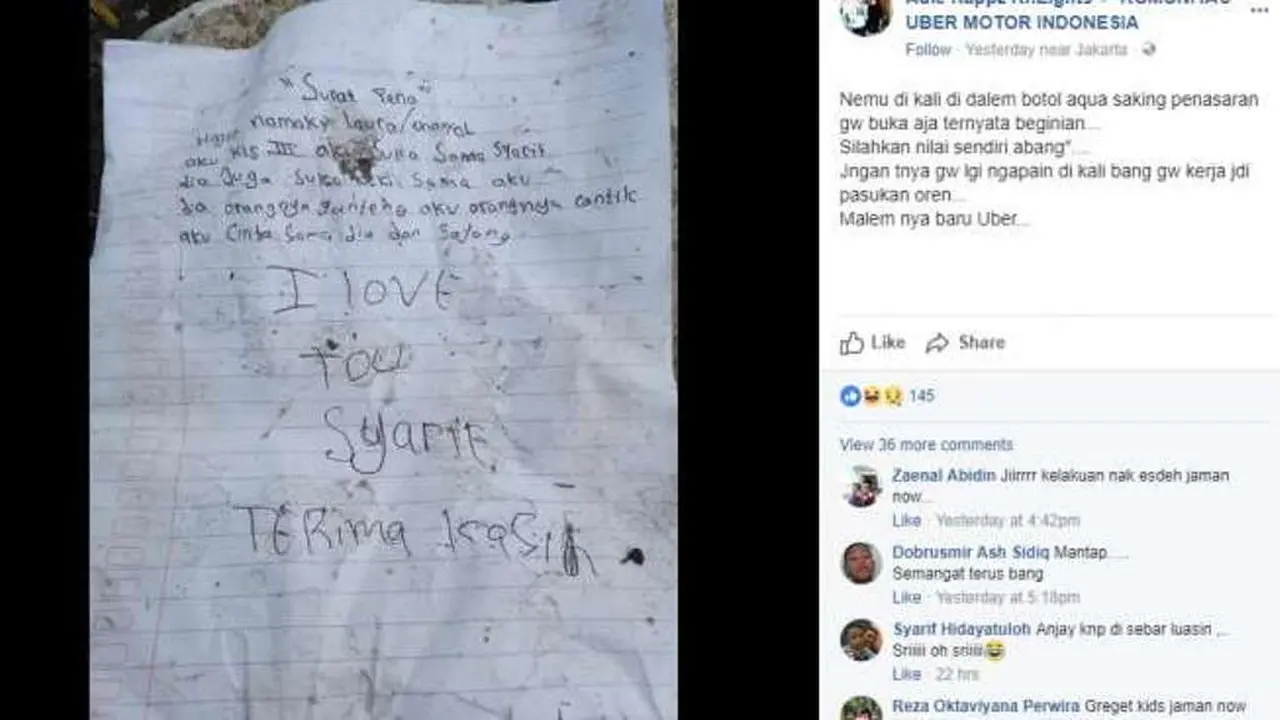 "Surat Pena"
namaku Laura/
aku kls III aku Suka Sama Syarif
dia Juga Suka Sama aku
dia orangnya ganteng aku orangnya cantik
aku Cinta Sama dia dan Sayang
I LOVE
YOU
SyARIF
TERima kasih
UBER MOTOR INDONESIA
Follow · Yesterday near Jakarta ·
Nemu di kali di dalem botol aqua saking penasaran
gw buka aja ternyata beginian...
Silahkan nilai sendiri abang"....
Jngan tnya gw lgi ngapain di kali bang gw kerja jdi
pasukan oren...
Malem nya baru Uber...
Like Share
145
View 36 more comments
Zaenal Abidin Jiirrrr kelakuan nak esdeh jaman
now...
Like · Yesterday at 4:42pm
Dobrusmir Ash Sidiq Mantap.....
Semangat terus bang
Like · Yesterday at 5:18pm
Syarif Hidayatuloh Anjay knp di sebar luasin ,..
Sriiiii oh sriiiii😂
Like · 22 hrs
Reza Oktaviyana Perwira Greget kids jaman now